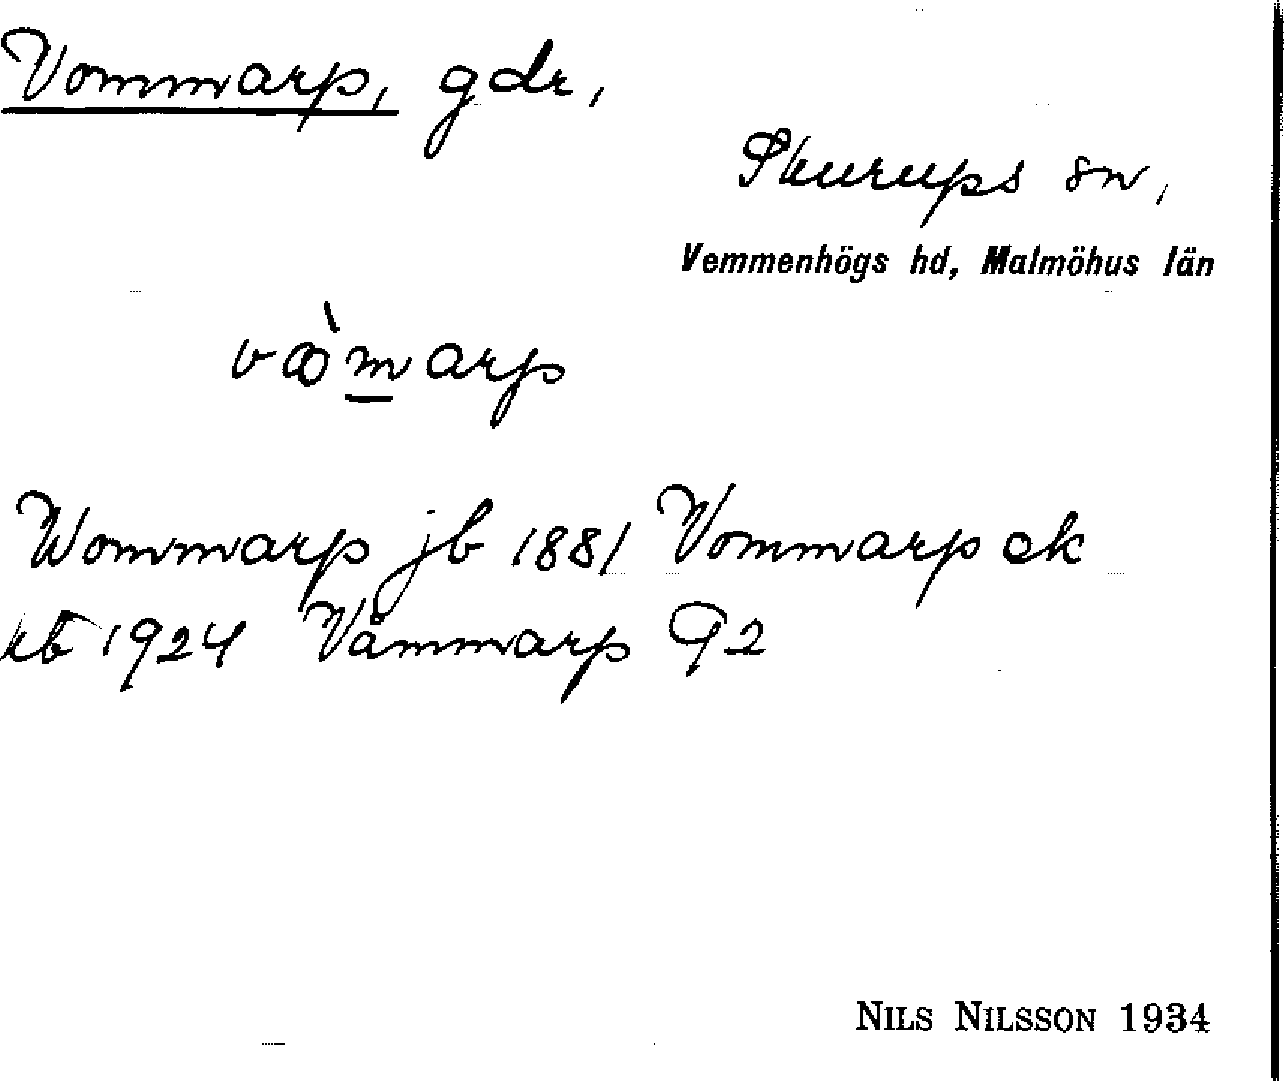 Vommarp, gdr,
Skurups sn,
Vemmenhögs hd, Malmöhus län
Wommarp jb 1881 Vommarp ek
1924 Våmmarp
NILS NILSSON 1934